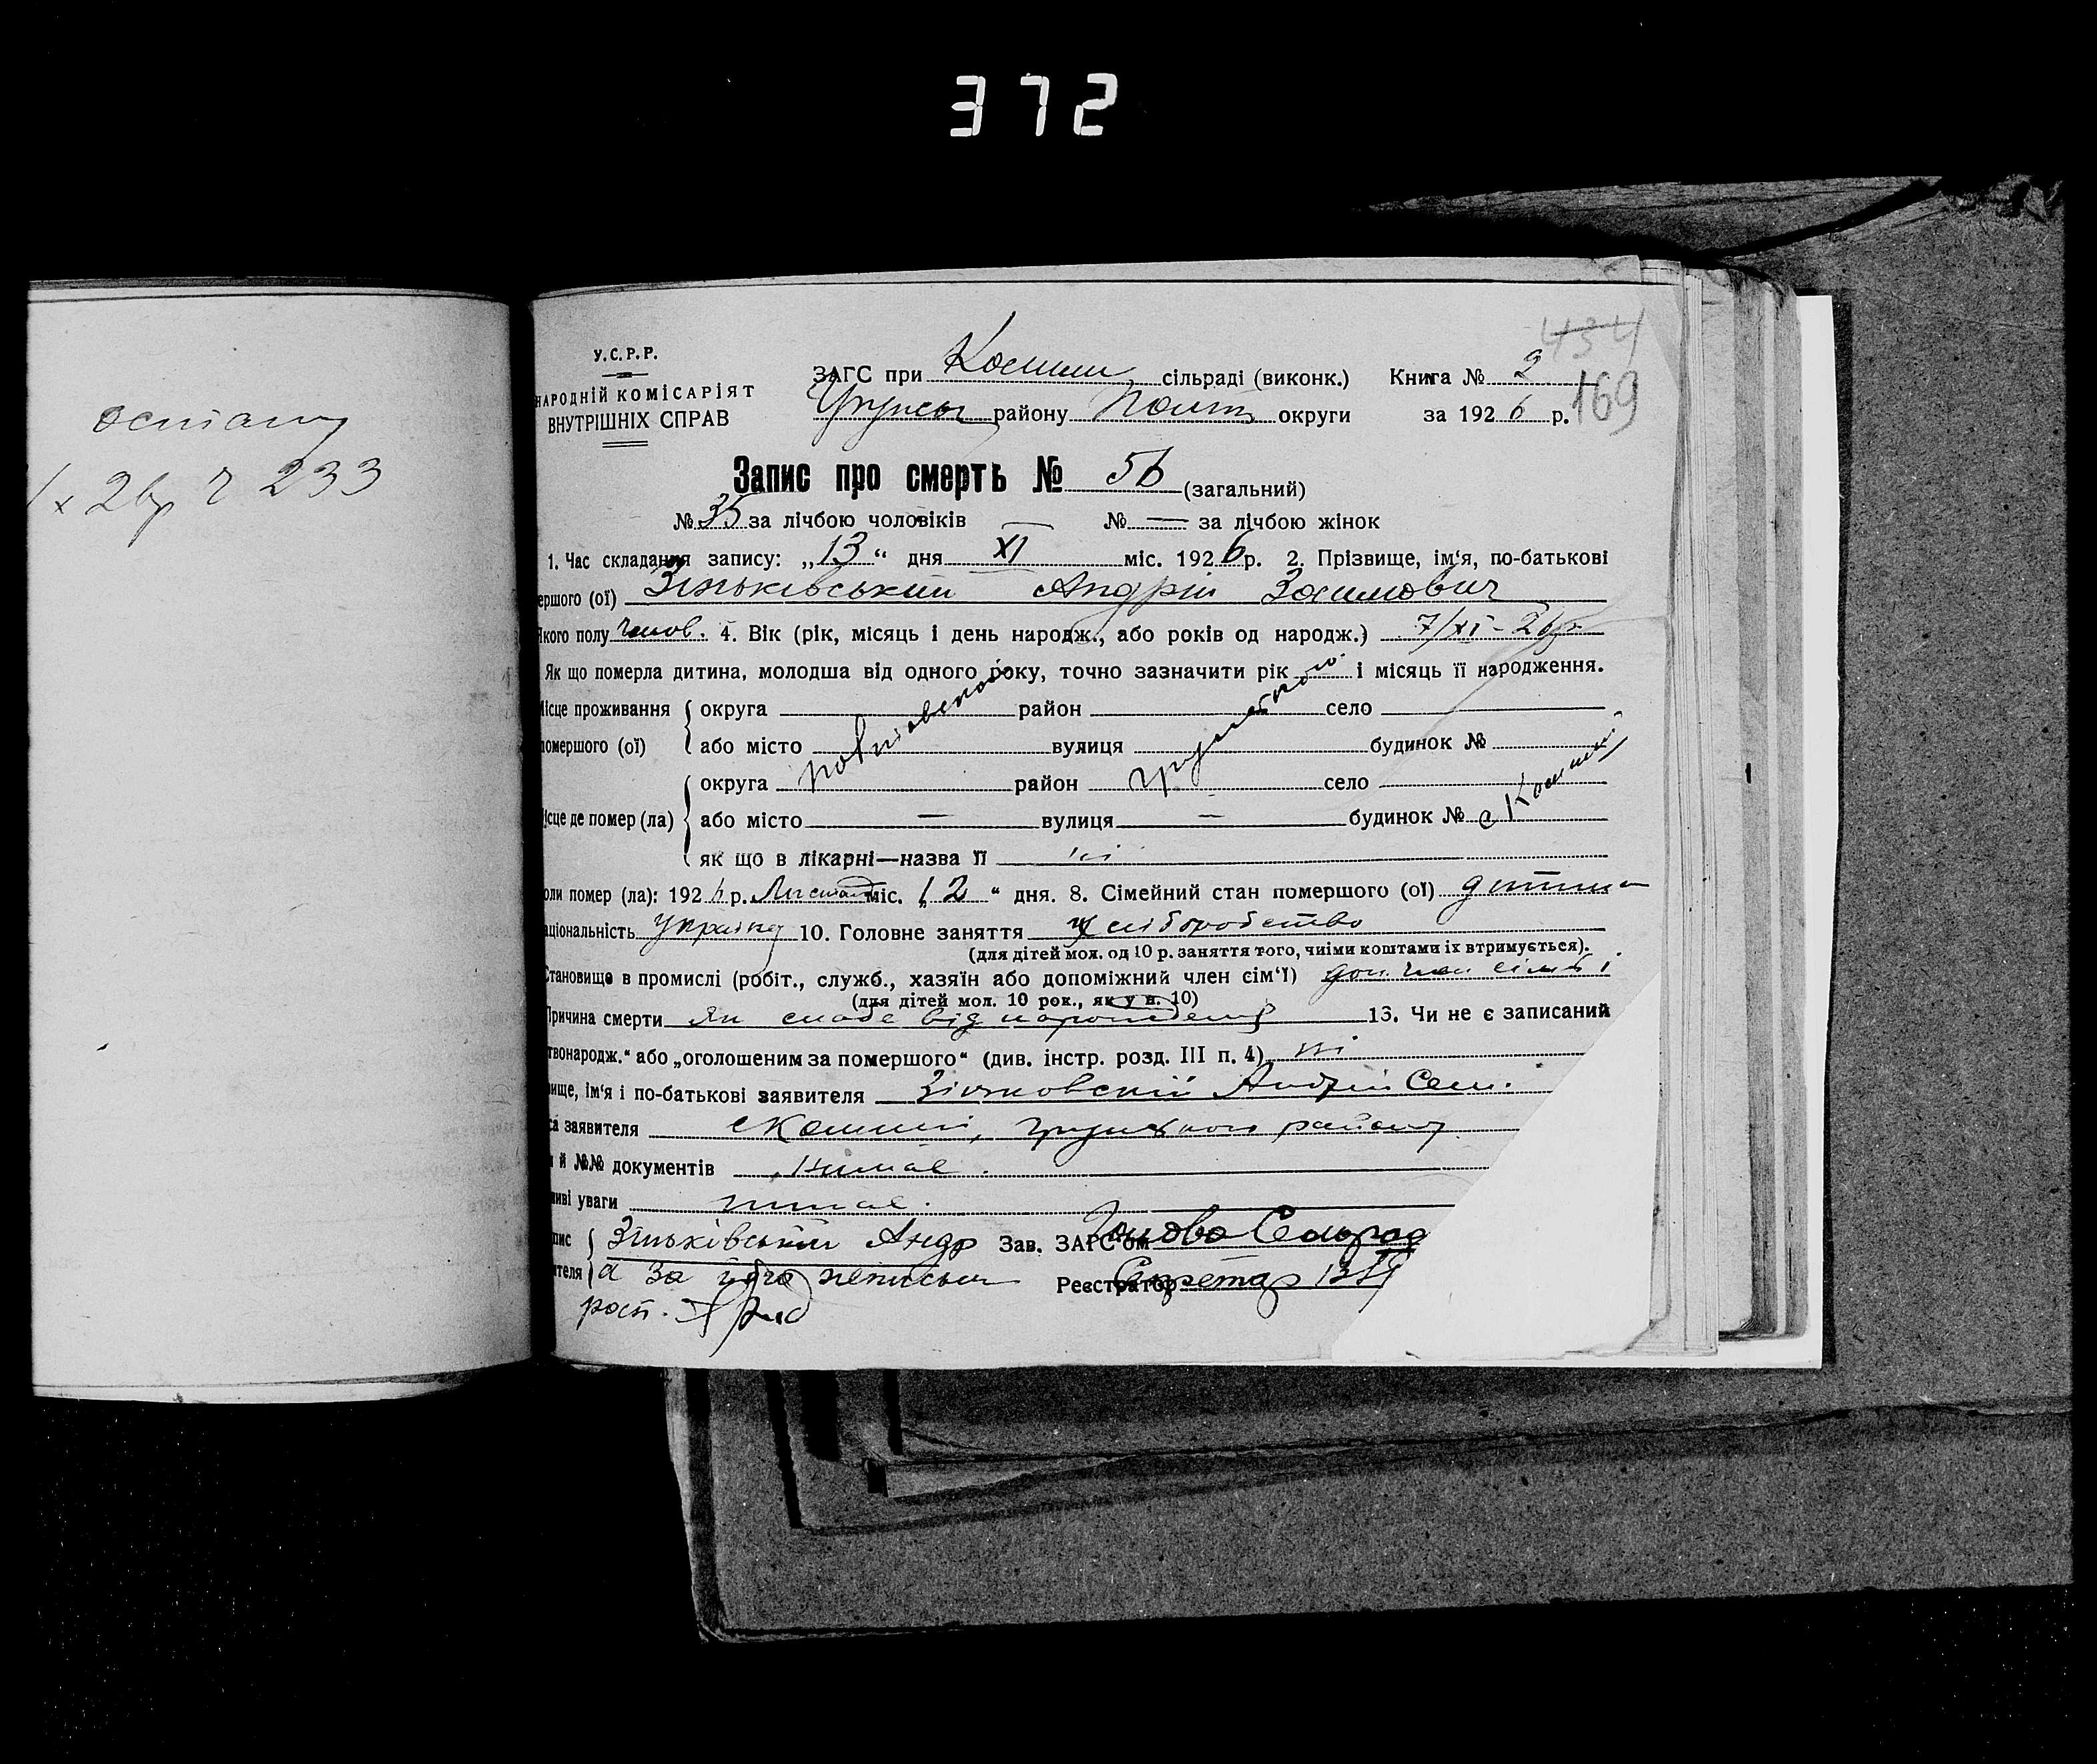 372
останц
233
434
169
У.С.Р.Р.
НАРОДНІЙ КОМІСАРІЯТ
ВНУТРІШНІХ СПРАВ
ЗАГС при сільраді (виконк.) Книга № 2
району Полт округи за 1926 р.
Запис про смерть № 56 (загальний)
№ 35 за лічбою чоловіків № — за лічбою жінок
1. Час складання запису: „13“ дня XI міс. 1926 р. 2. Прізвище, ім‘я, по-батькові
ершого (ої) Зіньківський Андрій
якого полу чолов. 4. Вік (рік, місяць і день народж., або років од народж.) 7/XI-26р.
Як що померла дитина, молодша від одного року, точно зазначити рік і місяць її народження.
Місце проживання округа район село
помершого (ої) або місто вулиця будинок №
округа район село
Місце де помер (ла) або місто — вулиця — будинок №
як що в лікарні—назва її ні
оли помер (ла): 1926 р. Листопад міс. „12“ дня. 8. Сімейний стан помершого (ої) дитина
аціональність україн 10. Головне заняття хліборобство
(для дітей мол. од 10 р. заняття того, чиїми коштами їх втримується).
Становище в промислі (робіт., служб., хазяїн або допоміжний член сім‘ї) доп. член сімьі
(для дітей мол. 10 рок., як у п. 10)
Причина смерти як слабе від народження 13. Чи не є записаний
твонародж.“ або „оголошеним за помершого“ (див. інстр. розд. III п. 4) ні
вище, ім‘я і по-батькові заявителя Зіньковский Андрій Сем.
са заявителя району
и й №№ документів немає.
ливі уваги немає.
пис Зіньківський Андр Зав. ЗАГС‘ом Голова Сільрад
ителя а за його неписьм Реєстратор Секретар
розп.